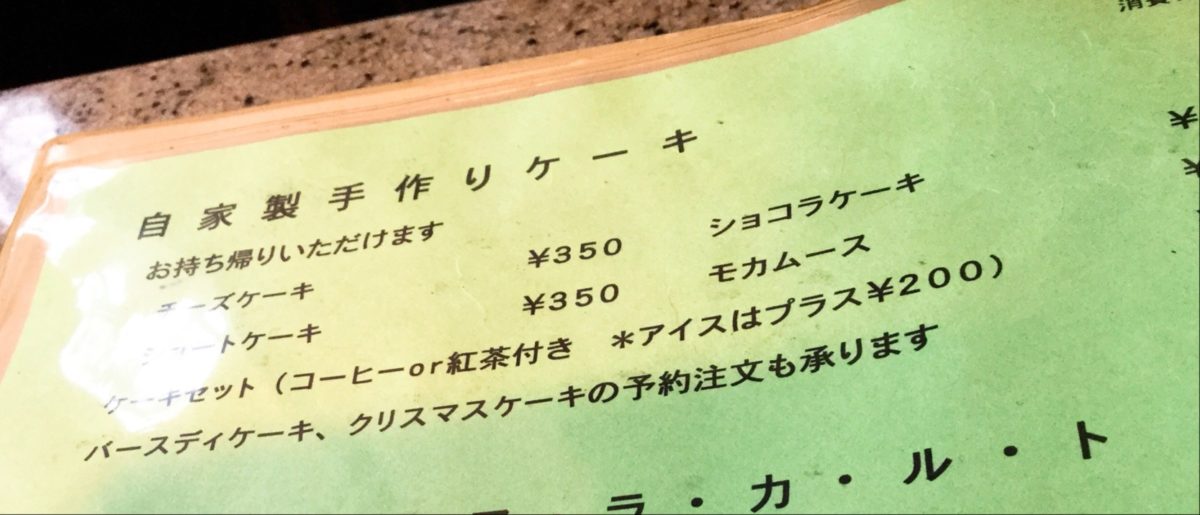 消費
自家製手作りケーキ
お持ち帰りいただけます
チーズケーキ ¥350 ショコラケーキ ¥
ショートケーキ ¥350 モカムース ¥
ケーキセット（コーヒーor紅茶付き ＊アイスはプラス¥200）
バースディケーキ、クリスマスケーキの予約注文も承ります
ラ・カ・ル・ト